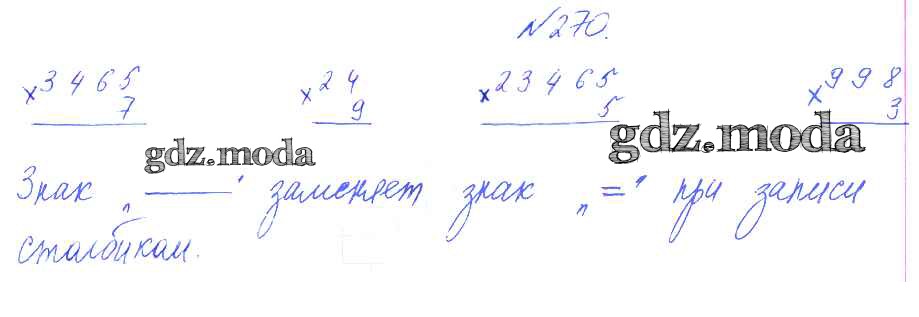 №270.
×3465 ×24 ×23465 ×998
7 9 5 3
gdz.moda gdz.moda
Знак „——" заменяет знак „=" при записи
столбиком.